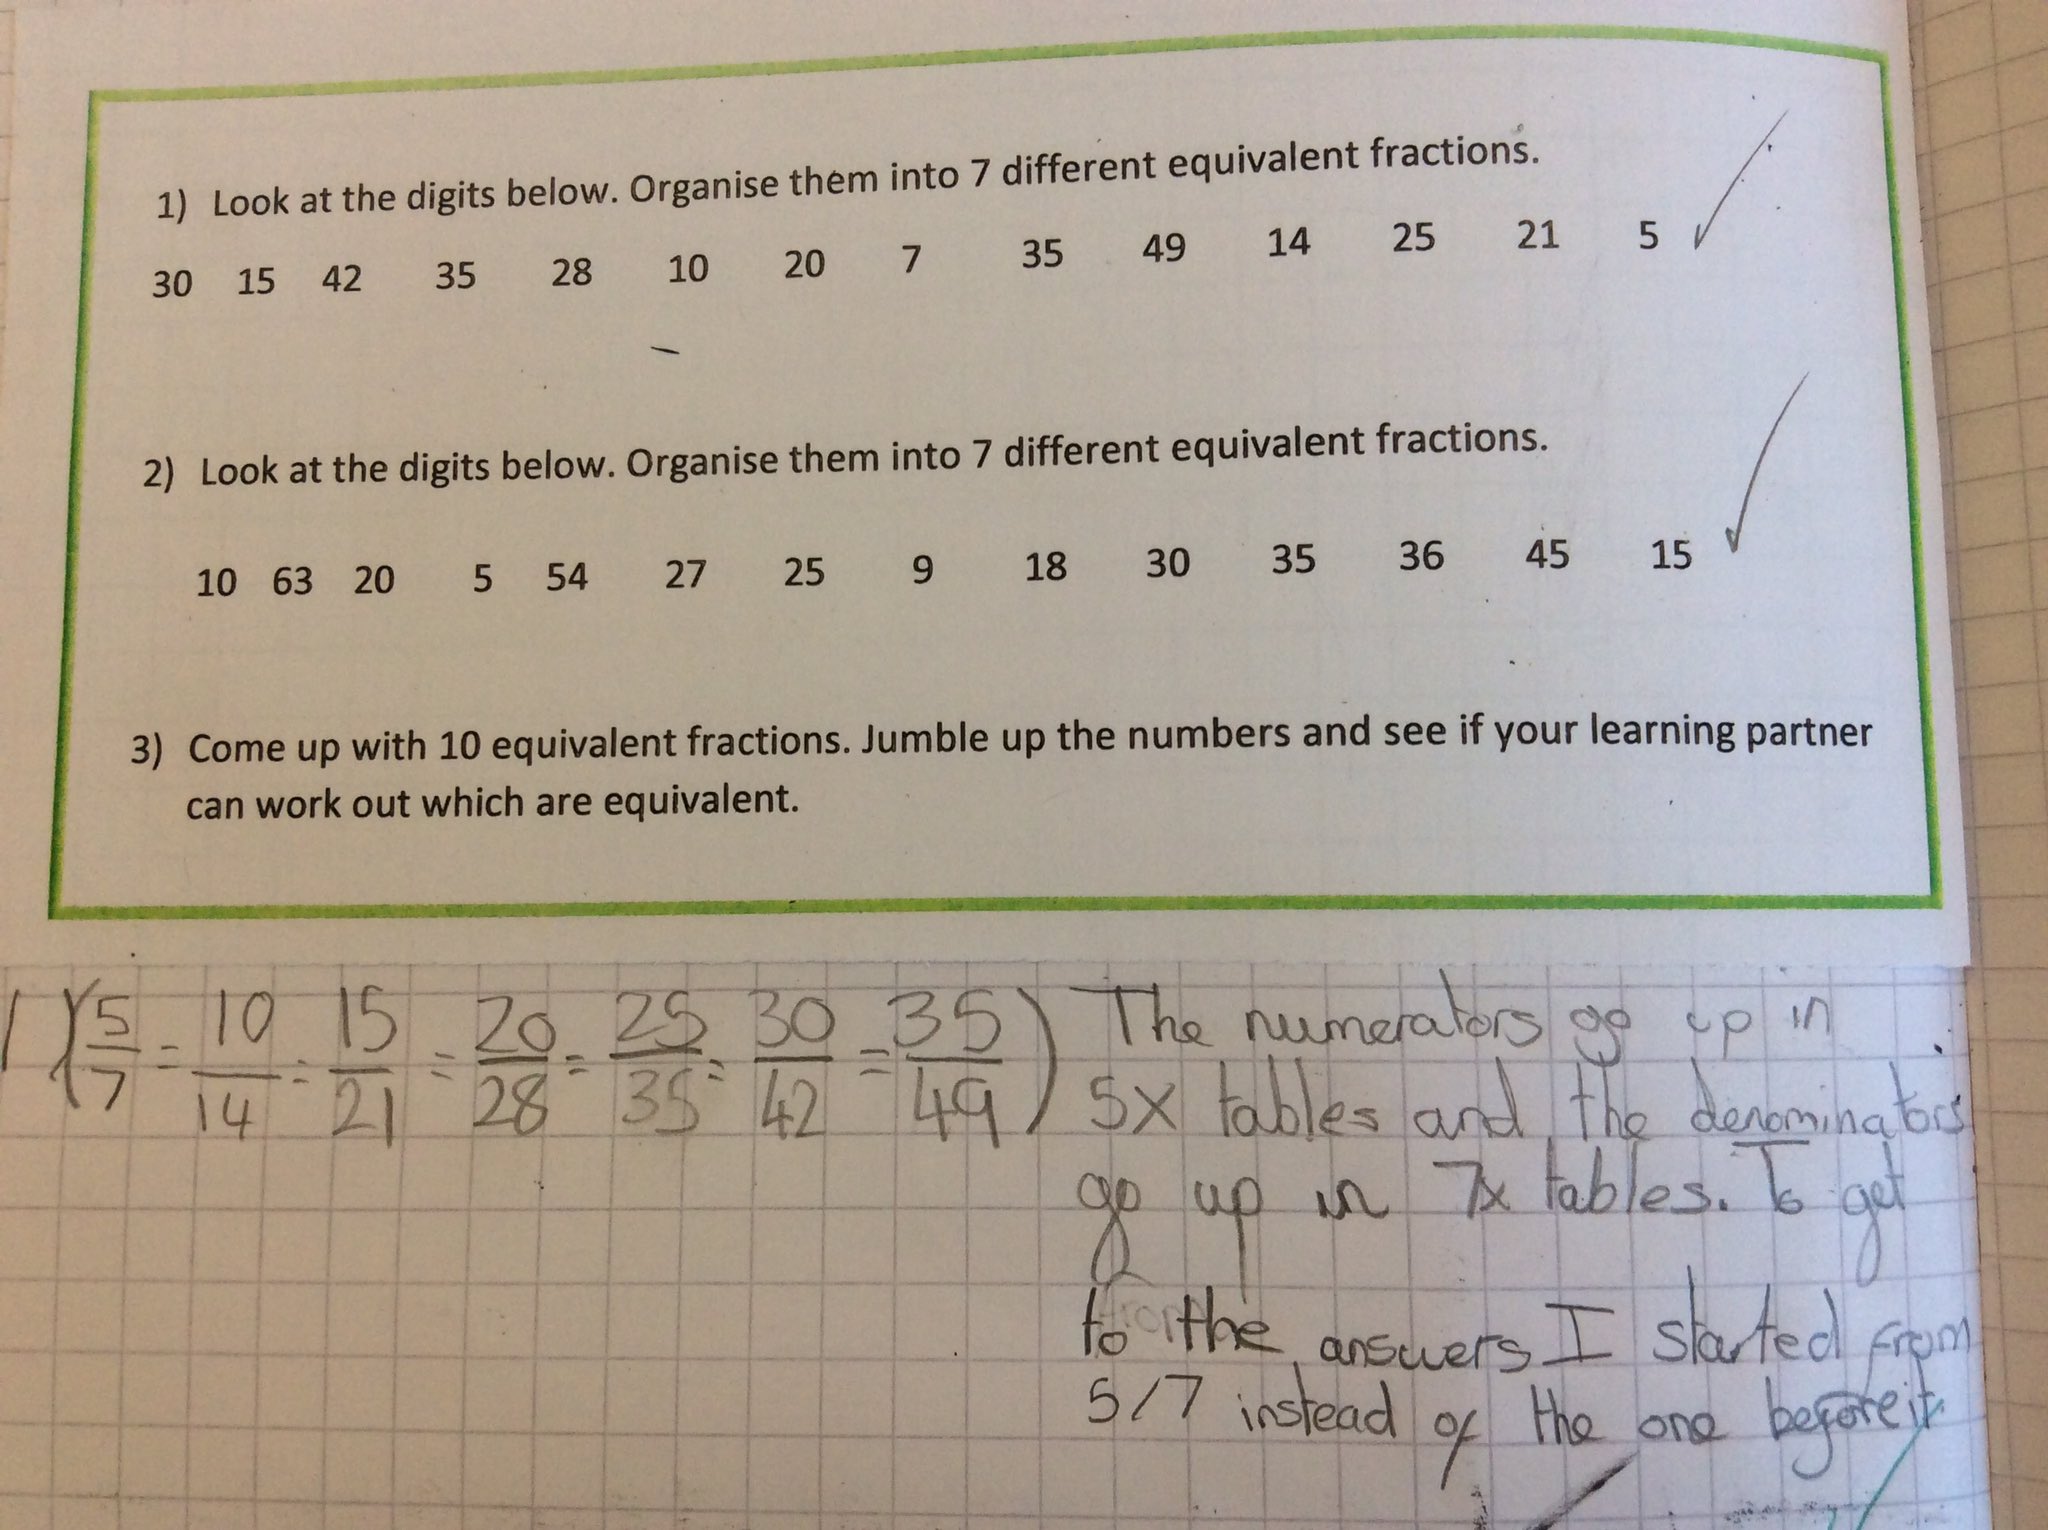 1) Look at the digits below. Organise them into 7 different equivalent fractions.
30 15 42 35 28 10 20 7 35 49 14 25 21 5
2) Look at the digits below. Organise them into 7 different equivalent fractions.
10 63 20 5 54 27 25 9 18 30 35 36 45 15
3) Come up with 10 equivalent fractions. Jumble up the numbers and see if your learning partner
can work out which are equivalent.
1) (5/7 = 10/14 = 15/21 = 20/28 = 25/35 = 30/42 = 35/49)
The numerators go up in
5x tables and the denominators
go up in 7x tables. To get
to the answers I started from
5/7 instead of the one before it